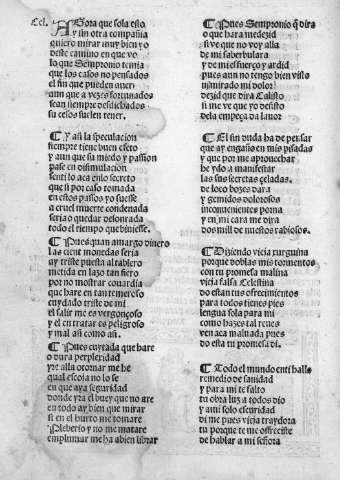 Cel. AGora que sola esto
y sin otra compañia
quiero mirar muy bien yo
deste camino en que vo
lo que Sempronio temia
que los casos no pensados
el fin que pueden auer
aun que a vezes fortunados
sean siempre desdichados
su cesos suelen tener.
¶ Y assi la speculacion
siempre tiene buen efeto
y aun que su miedo y passion
pase en dissimulacion
senti lo aca enlo secreto
que si por caso tomada
en estos passos yo fuesse
a cruel muerte condenada
seria o quedar desonrada
todo el tiempo que biuiesse.
¶ Pues quan amargo dinero
las cient monedas seria
ay triste puesta al tablero
metida en lazo tan fiero
por no mostrar couardia
que hare en tan temeroso
cuydado triste de mi
el salir me es vergonçoso
y el en tratar es peligroso
y mal assi como assi.
¶ Pues cuytada que hare
o dura perplexidad
yre alla o tornar me he
qual escoia no lo se
en que aya seguridad
donde yra el buey que no are
en todo ay bien que mirar
si en el hurto me tomare
Pleberio y no me matare
emplumar me ha a bien librar
¶ Pues Sempronio q̃ dira
o que hara me dezid
si ve que no voy alla
de mi saber bulara
y de mi esfuerço y ardid
pues aun no tengo bien visto
ni mirado mi dolor
dezid que dira Calisto
si me ve que yo desisto
dela empeça da lauor
¶ El sin duda ha de pensar
que ay engaño en mis pisadas
y que por me aprouechar
he ydo a manifestar
las sus secretas celadas.
de loco bozes dara
y gemidos dolorosos
inconuenientes porna
y en mi cara me dira
dos mill de nuestos rabiosos.
¶ Diziendo vieja turguina
porque doblas mis tormentos
con tu promesa malina
vieja falsa Celestina
do estan tus ofrecimientos
para todos tienes pies
lengua sola para mi
como hazes tal reues
ven aca maluada pues
do esta tu promesa di.
¶ Todo el mundo en ti halle
remedio de sanidad
y para mi te falto
tu obra luz a todos dio
y a mi solo escuridad
di me pues vieja traydora
tu porque te me offreciste
de hablar a mi señora